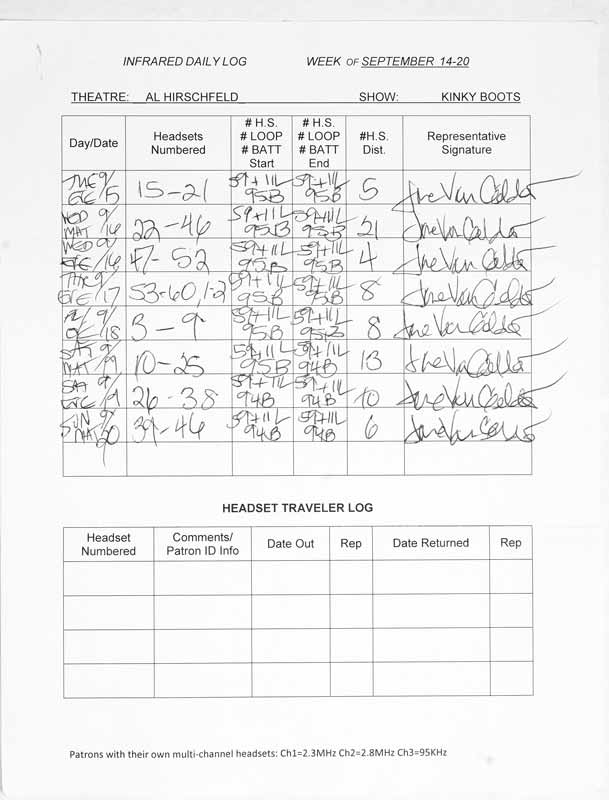 INFRARED DAILY LOG WEEK OF SEPTEMBER 14-20
THEATRE: AL HIRSCHFELD SHOW: KINKY BOOTS
Day/Date Headsets Numbered # H.S. # LOOP # BATT Start # H.S. # LOOP # BATT End #H.S. Dist. Representative Signature
TUE 9/15 EVE 15-21 59+11L 95B 59+11L 95B 5 Joe Van
WED 9/16 MAT 22-46 59+11L 95B 59+11L 95B 21 Joe Van
WED 9/16 EVE 47-52 59+11L 95B 59+11L 95B 4 Joe Van
THR 9/17 EVE 53-60, 1-2 59+11L 95B 59+11L 95B 8 Joe Van
9/18 3-9 59+11L 95B 59+11L 95B 8 Joe Van
SAT 9/19 MAT 10-25 59+11L 95B 59+11L 94B 13 Joe Van
SAT 9/19 EVE 26-38 59+11L 94B 59+11L 94B 10 Joe Van
SUN 9/20 MAT 39-46 59+11L 94B 59+11L 94B 6 Joe Van
HEADSET TRAVELER LOG
Headset Numbered Comments/ Patron ID Info Date Out Rep Date Returned Rep
Patrons with their own multi-channel headsets: Ch1=2.3MHz Ch2=2.8MHz Ch3=95KHz